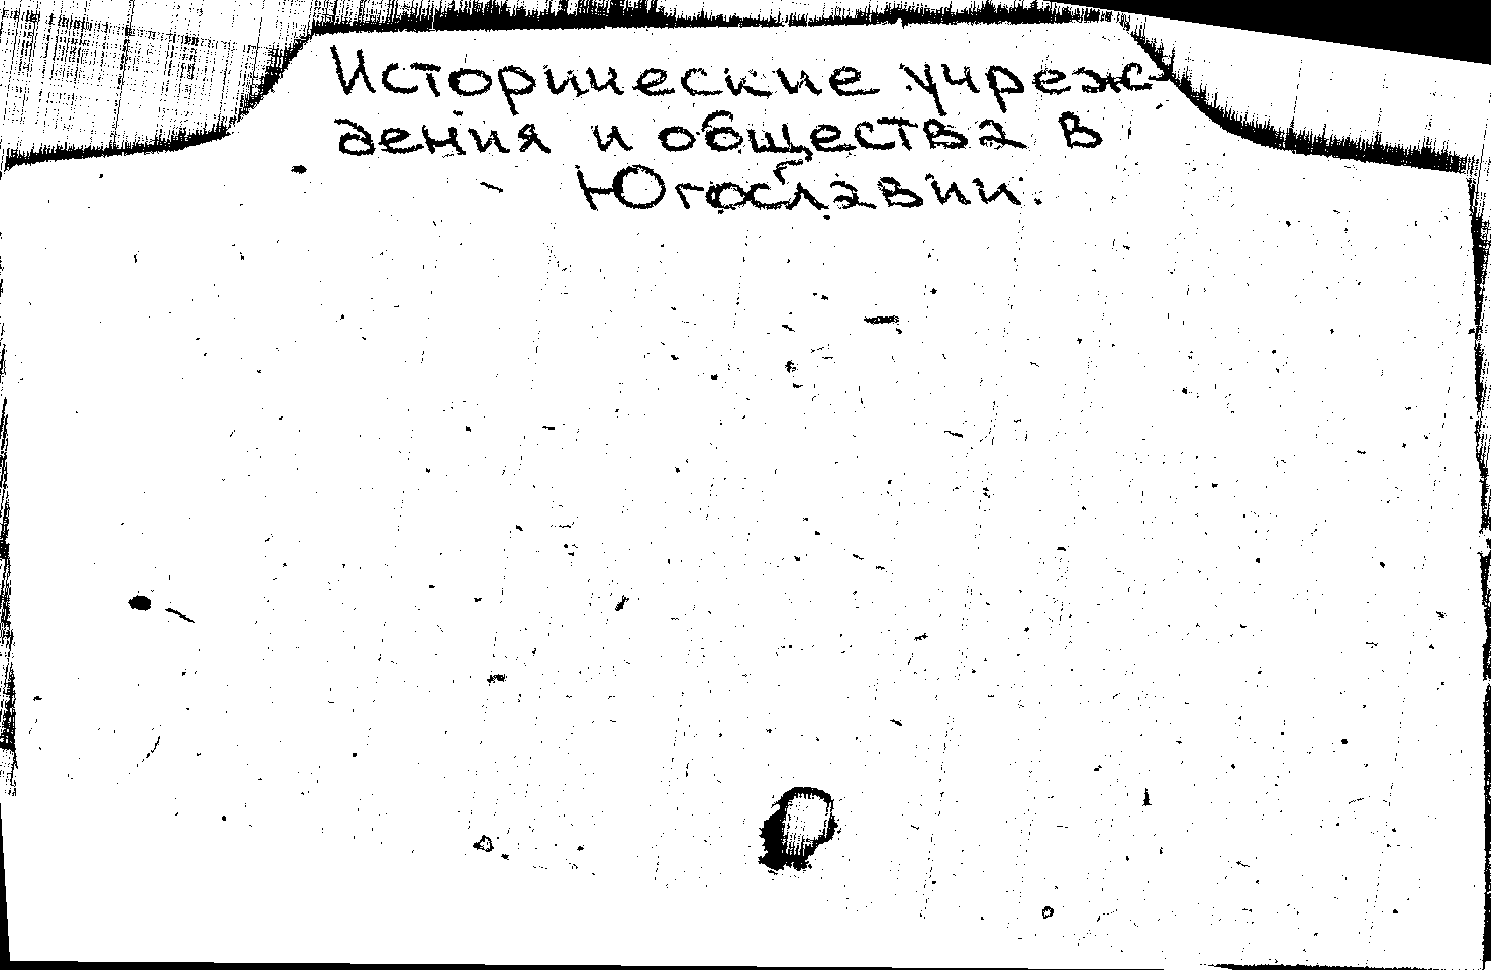 Исторические учреж-
дения и общества в
Югославии.